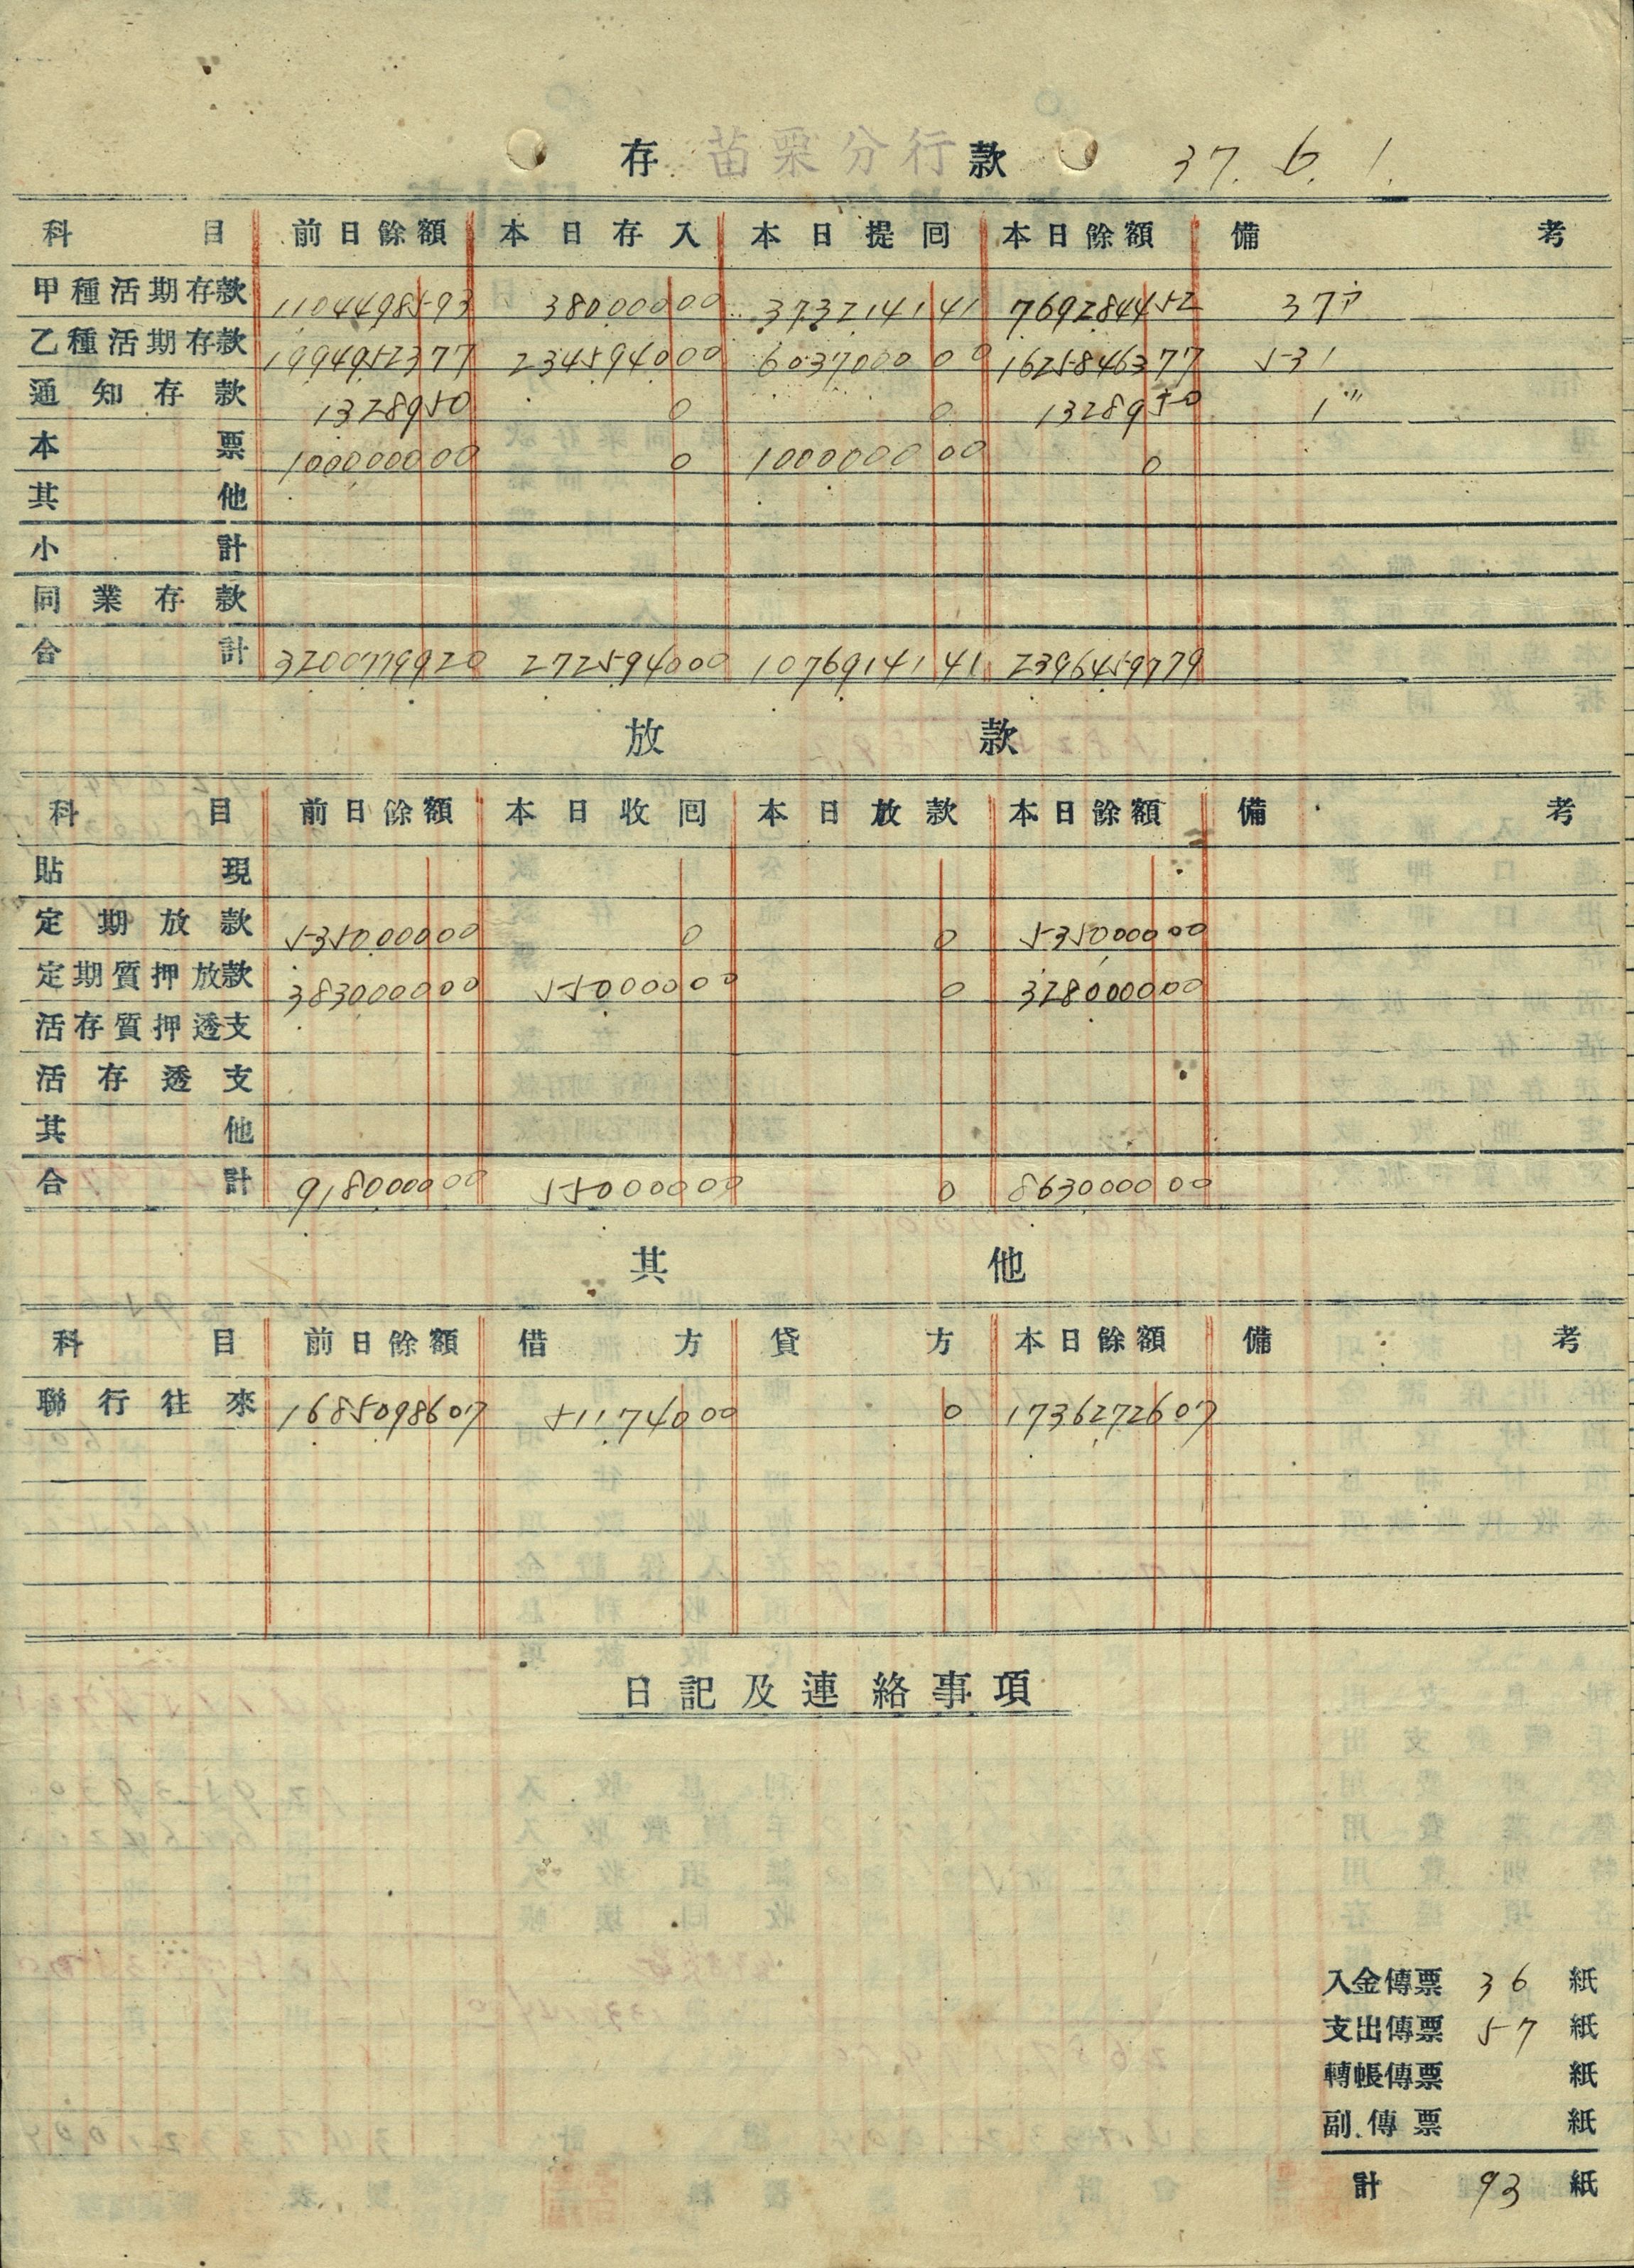 存 苗栗分行 款 37. 6. 1.
科目 前日餘額 本日存入 本日提回 本日餘額 備考
甲種活期存款 1104498593 38000000 373214141 769284452 37
乙種活期存款 1994952377 234594000 603700000 1625846377 531
通知存款 1328950 0 0 1328950 1"
本票 100000000 0 100000000 0
其他
小計
同業存款
合計 3200779920 272594000 1076914141 2396459779
放款
科目 前日餘額 本日收回 本日放款 本日餘額 備考
貼現
定期放款 535000000 0 0 535000000
定期質押放款 383000000 55000000 0 328000000
活存質押透支
活存透支
其他
合計 918000000 55000000 0 863000000
其他
科目 前日餘額 借方 貸方 本日餘額 備考
聯行往來 1685098607 51174000 0 1736272607
日記及連絡事項
入金傳票 36 紙
支出傳票 57 紙
轉帳傳票 紙
副傳票 紙
計 93 紙